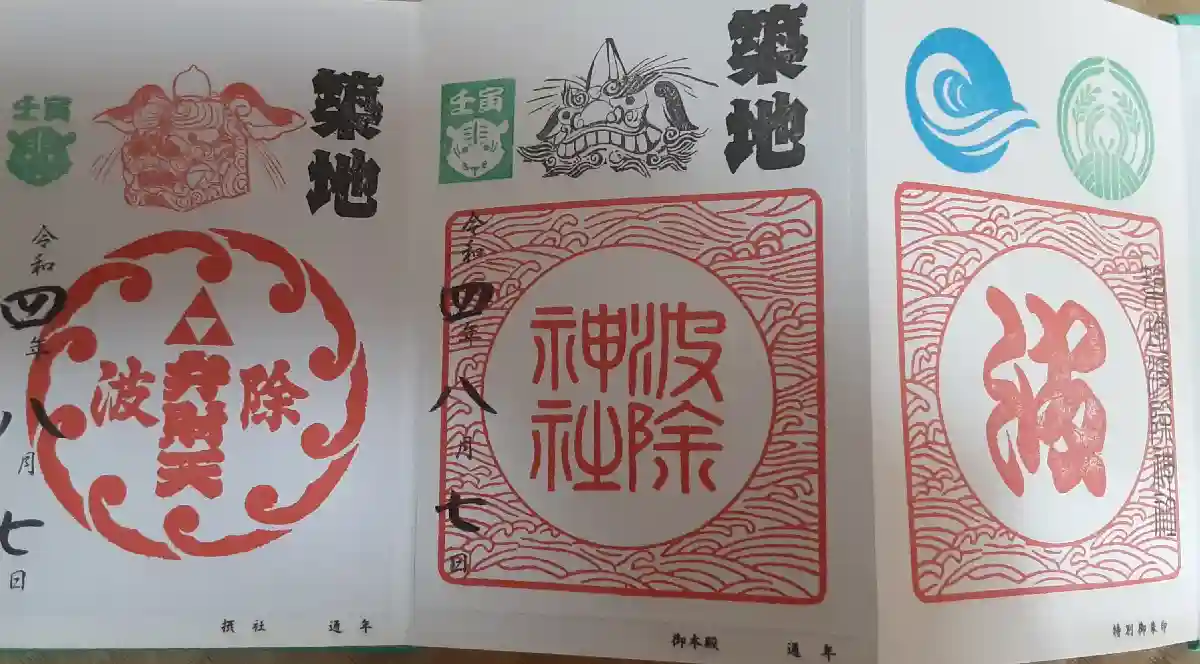 特別御朱印
築地
壬寅
波除
神社
令和四年八月七日
御本殿 通年
築地
壬寅
波除
弁財天
令和四年八月七日
摂社 通年